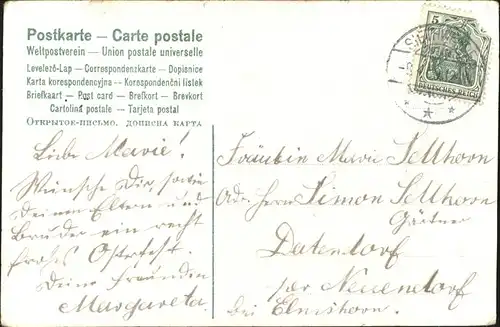 Postkarte — Carte postale
Weltpostverein — Union postale universelle
Levelező-Lap — Correspondenzkarte — Dopisnice
Karta korespondencyjna — Korespondenční lístek
Briefkaart — Post card — Brefkort — Brevkort
Cartolina postale — Tarjeta postal
Открытое-письмо. дописна карта
5
DEUTSCHES REICH
Liebe Marie!
Wünsche Dir, sowie
Deinen Eltern und
Bruder ein recht
frohes Osterfest.
Deine Freundin
Margareta.
Fräulein Marie Sellhorn
Adr. Herrn Simon Sellhorn
Gärtner
Datendorf
per Neuendorf
bei Elmshorn.